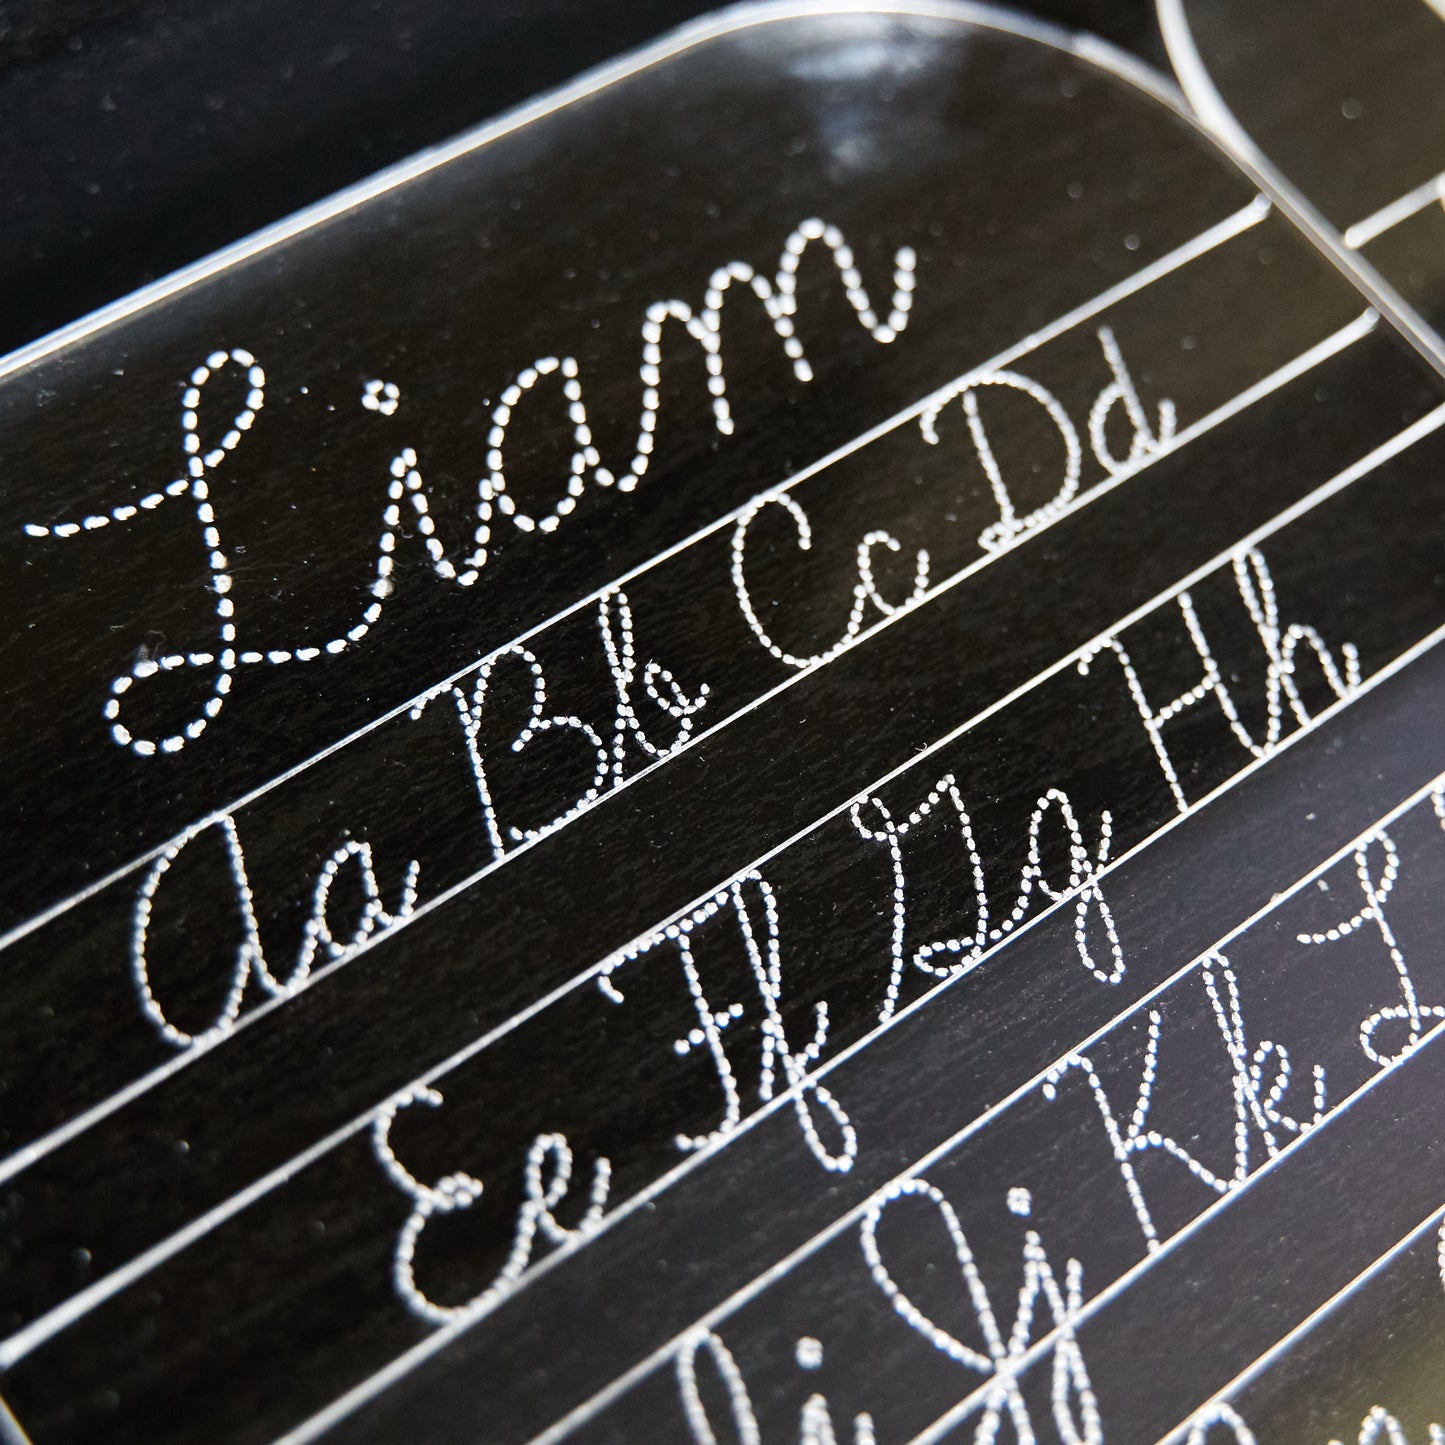 Liam
Aa Bb Cc Dd
Ee Ff Gg Hh
Ii Jj Kk L